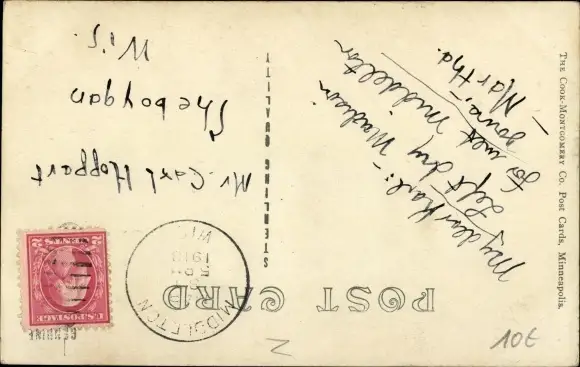 POST CARD
GENUINE
STERLING QUALITY
U.S. POSTAGE
2 CENTS 2
MIDDLETON
5 PM
1918
WIS.
Mr. Carl Hoppert
Sheboygan
Wis.
My dear Karl:-
Left dry Madison
for wet Middleton
Martha.
THE COOK-MONTGOMERY CO. POST CARDS, MINNEAPOLIS.
10€
N